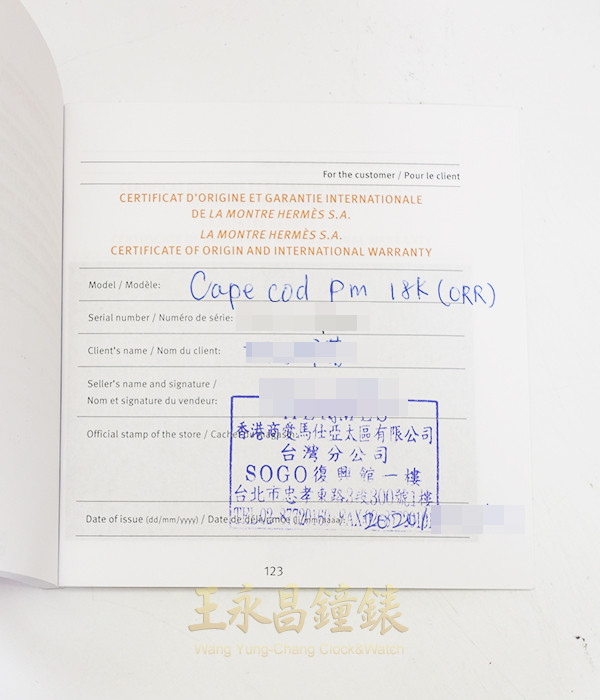 For the customer / Pour le client
CERTIFICAT D'ORIGINE ET GARANTIE INTERNATIONALE
DE LA MONTRE HERMÈS S.A.
LA MONTRE HERMÈS S.A.
CERTIFICATE OF ORIGIN AND INTERNATIONAL WARRANTY
Model / Modèle: Cape cod Pm 18K (ORR)
Serial number / Numéro de série:
Client's name / Nom du client:
Seller's name and signature /
Nom et signature du vendeur:
HERMES
Official stamp of the store / Cachet
香港商愛馬仕亞太區有限公司
台灣分公司
SOGO復興館一樓
台北市忠孝東路3段300號1樓
Date of issue (dd/mm/yyyy) / Date de délivrance (jj/mm/aaaa):
123
王永昌鐘錶
Wang Yung-Chang Clock&Watch